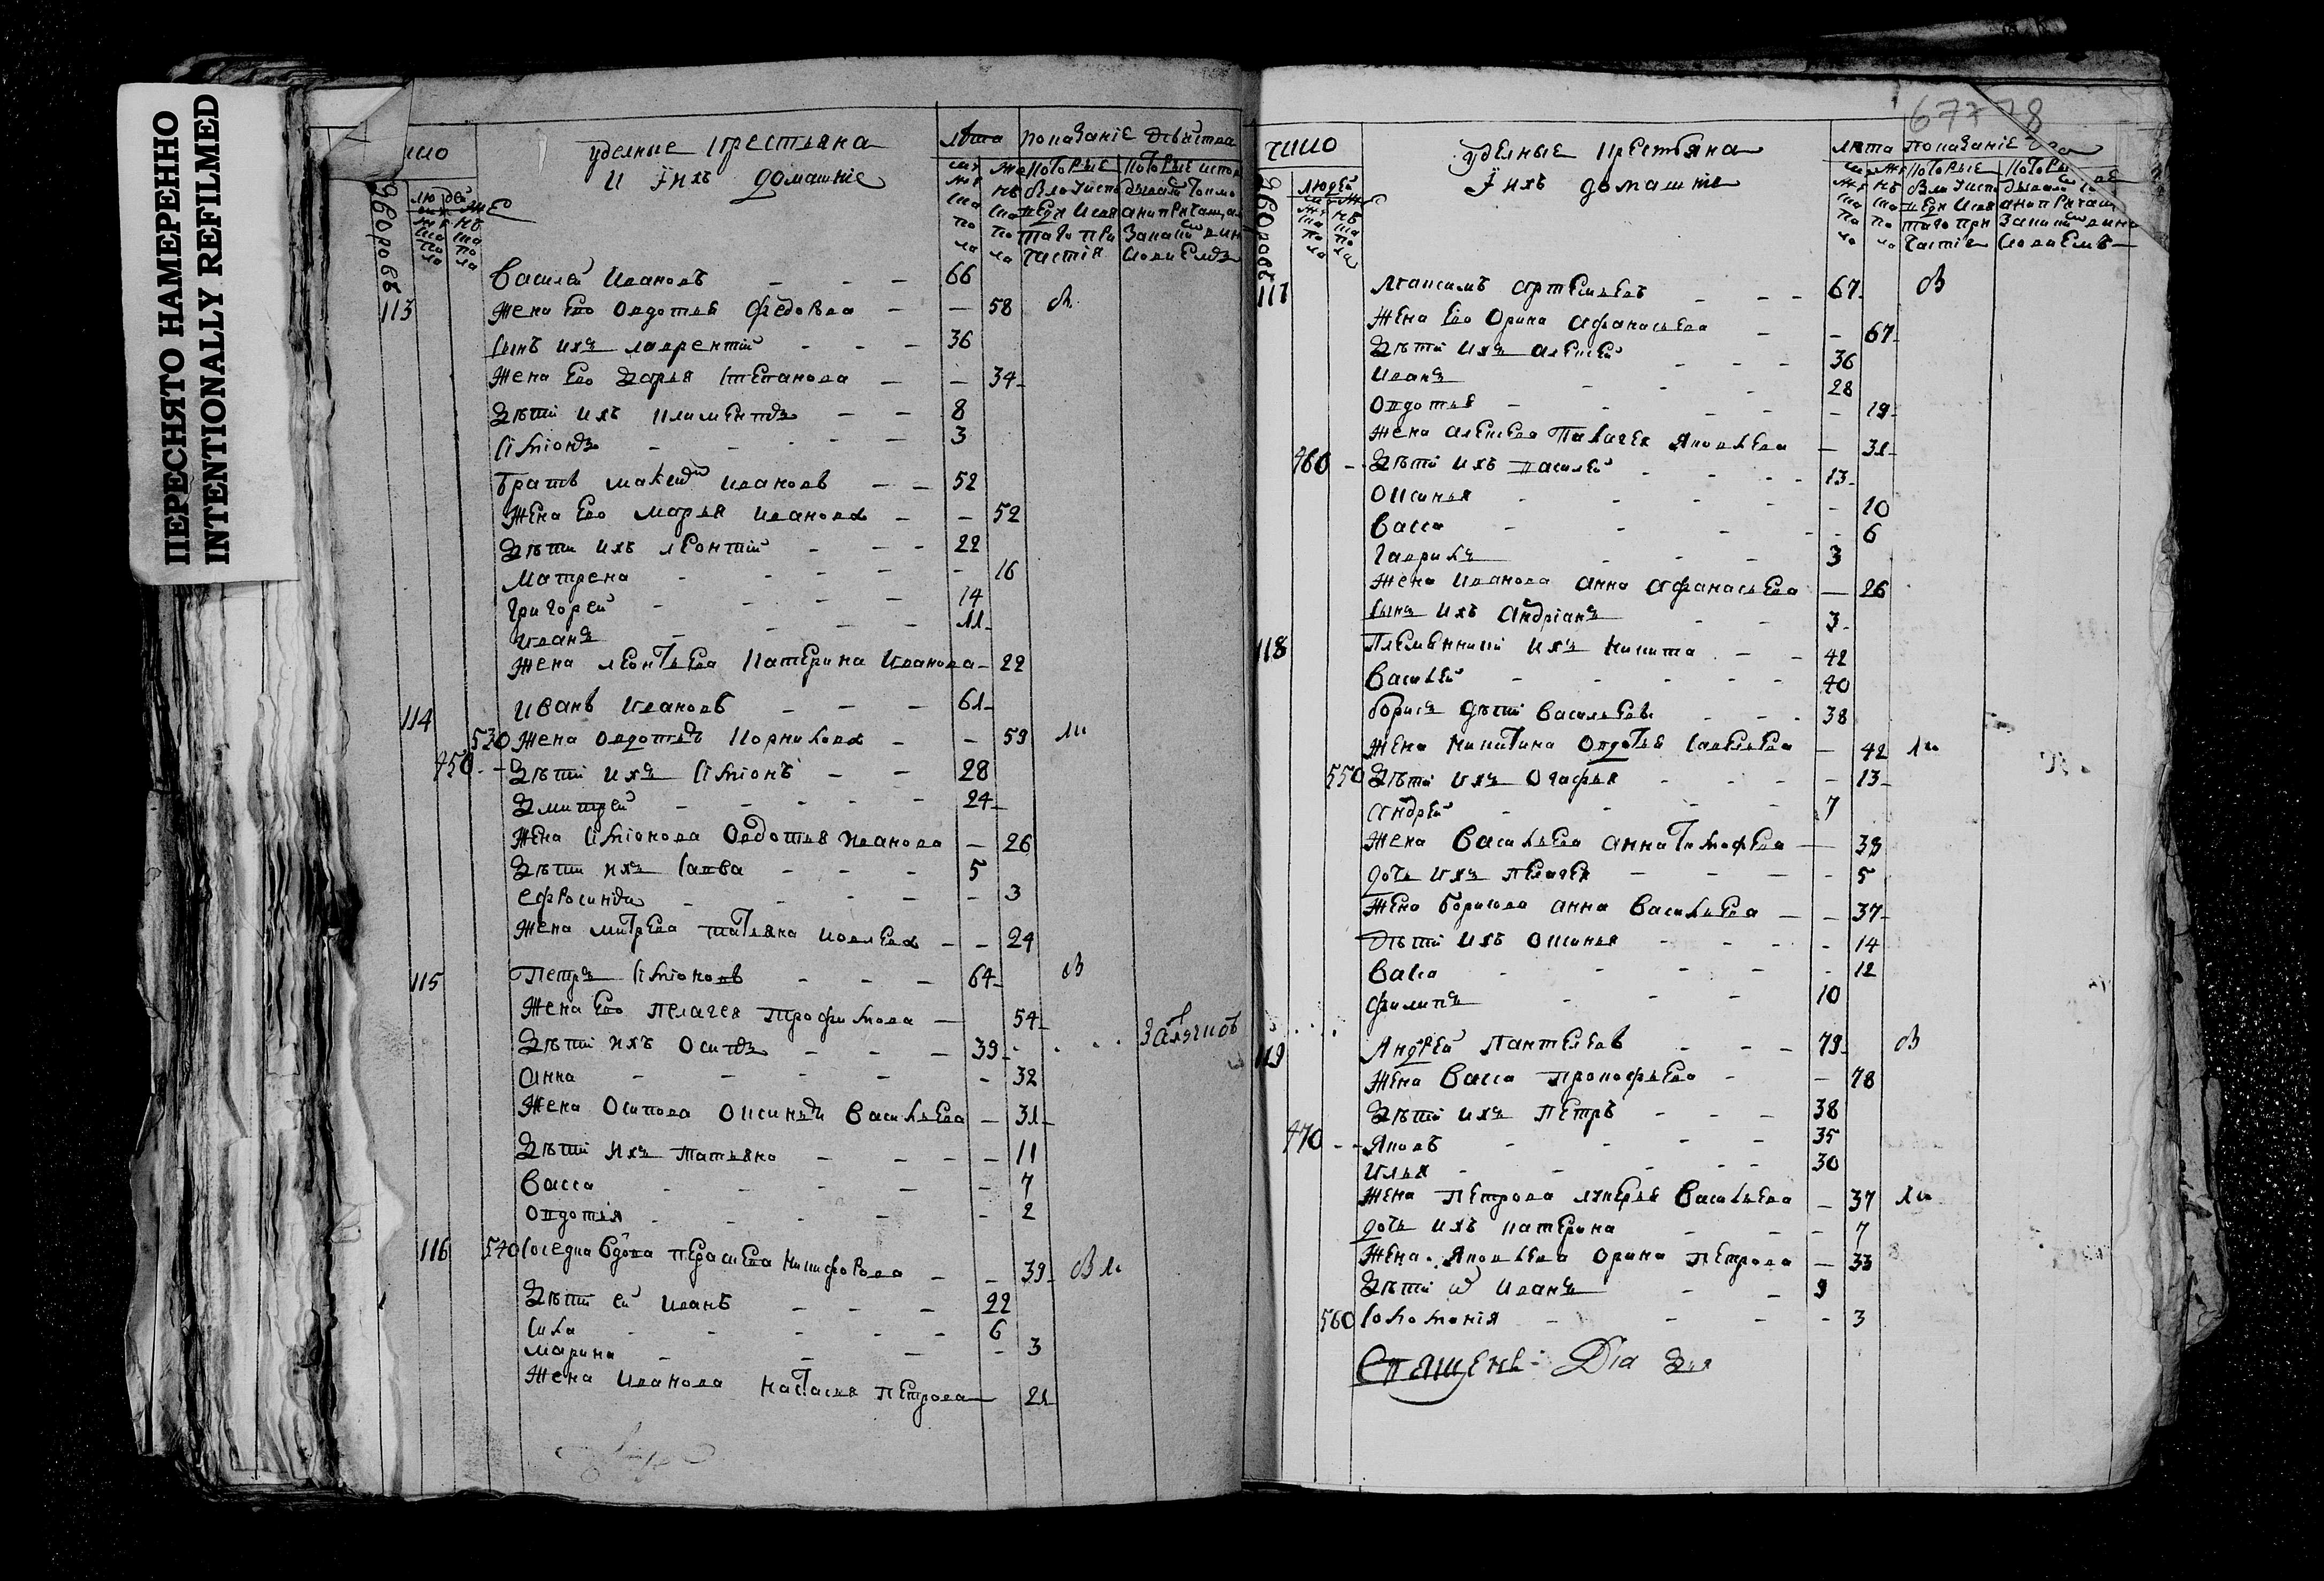 ПЕРЕСНЯТО НАМЕРЕННО
INTENTIONALLY REFILMED
удельние крестьяна
и ихъ домашніе
лѣта показаніе действа
Василей Ивановъ - - - 66
113 Жена Ево Овдотья Федорова - - 58
Сынъ ихъ Лаврентий - - - 36
Жена Ево Дарья Степанова - - 34
Дѣти ихъ Климентъ - - 8
Симионъ - - - - 3
Братъ Максимъ Ивановъ - - 52
Жена Ево Марья Иванова - - 52
Дѣти ихъ Леонтий - - - 22
Матрена - - - - - 16
Григорей - - - - 14
Иванъ - - - - 11
Жена Леонтьева Катерина Иванова - 22
114 Иванъ Ивановъ - - - 61
530 Жена Овдотья Корнилова - - 59
450 Дѣти ихъ Симионъ - - 28
Дмитрей - - - - - 24
Жена Симионова Овдотья Иванова - 26
Дѣти ихъ Савва - - - 5
Ефросинья - - - - - 3
Жена Митрева Татьяна Иовлева - - 24
115 Петръ Симионовъ - - - 64
Жена Ево Пелагея Трофимова - 54
Дѣти ихъ Осипъ - - - 39
Анна - - - - - 32
Жена Осипова Оксинья Васильева - 31
Дѣти ихъ Татьяна - - - - 11
Васса - - - - - 7
Овдотья - - - - - 2
116 540 Соседка вдова Парасковья Никифорова - - 39
Дѣти ей Иванъ - - - 22
Сила - - - - - 6
Марина - - - - 3
Жена Иванова Настасья Петрова - 21
число
удельные крестьяна
и ихъ домашніе
лѣта показаніе
117 Максимъ Артемьевъ - - - 67
Жена Ево Орина Афанасьева - - 67
Дѣти ихъ Алексей - - - 36
Иванъ - - - 28
Овдотья - - - - - 19
Жена Алексева Палагея Яковлева - 31
460 - - Дѣти ихъ Василей - - - - 13
Оксинья - - - - - 10
Васса - - - - - 6
Гаврила - - - 3
Жена Иванова Анна Афанасьева - 26
Сынъ ихъ Андріанъ - - 3
118 Племянники ихъ Никита - - 42
Василей - - - - - 40
Борисъ Дѣти Васильевы - - - 38
Жена Никитина Овдотья Савельева - 42
550 Дѣти ихъ Огафья - - - - 13
Андрей - - - - 7
Жена Васильева Анна Тимофева - 38
дочь ихъ Пелагея - - - - 5
Жена Борисова Анна Васильева - - 37
Дѣти ихъ Оксинья - - - - 14
Васса - - - - - 12
Филипъ - - - 10
119 Андрей Пантелеевъ - - - 79
Жена Васса Прокофьева - - 78
Дѣти ихъ Петръ - - - 38
470 - - Яковъ - - - - 35
Илья - - - - - 30
Жена Петрова Лукерья Васильева - 37
дочь ихъ Катерина - - - 7
Жена Яковлева Орина Петрова - 33
Дѣти Иванъ - - 9
560 Соломонія - - - - 3